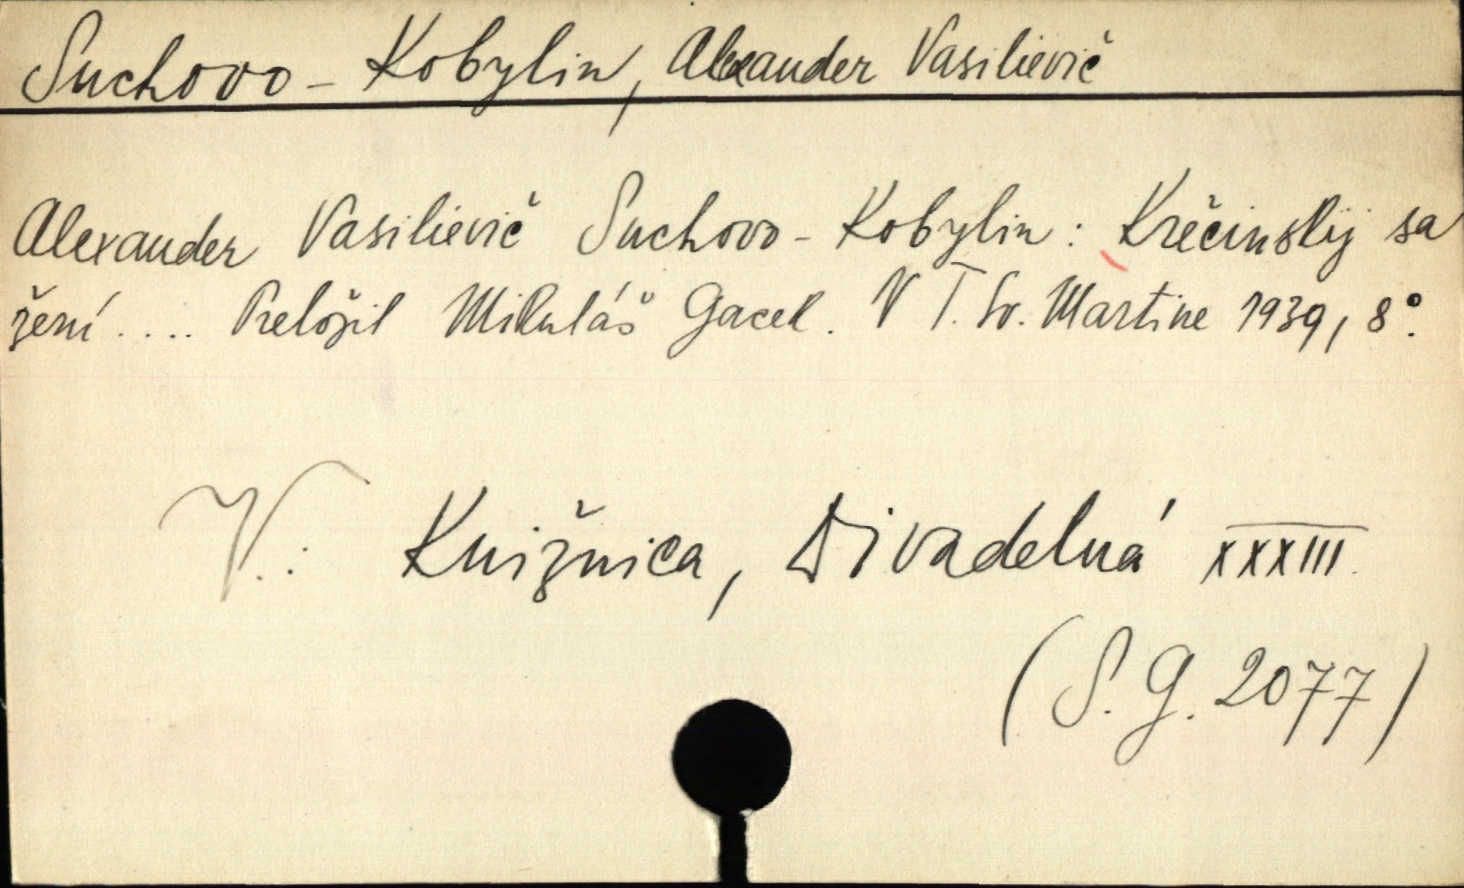 Suchovo-Kobylin, Alexander Vasilievič
Alexander Vasilievič Suchovo-Kobylin: Krěčinskij sa
žení.... Preložil Mikuláš Gacek. V T. Sv. Martine 1939, 8°.
V.: Knižnica, Divadelná XXXIII.
(S.G. 2077)